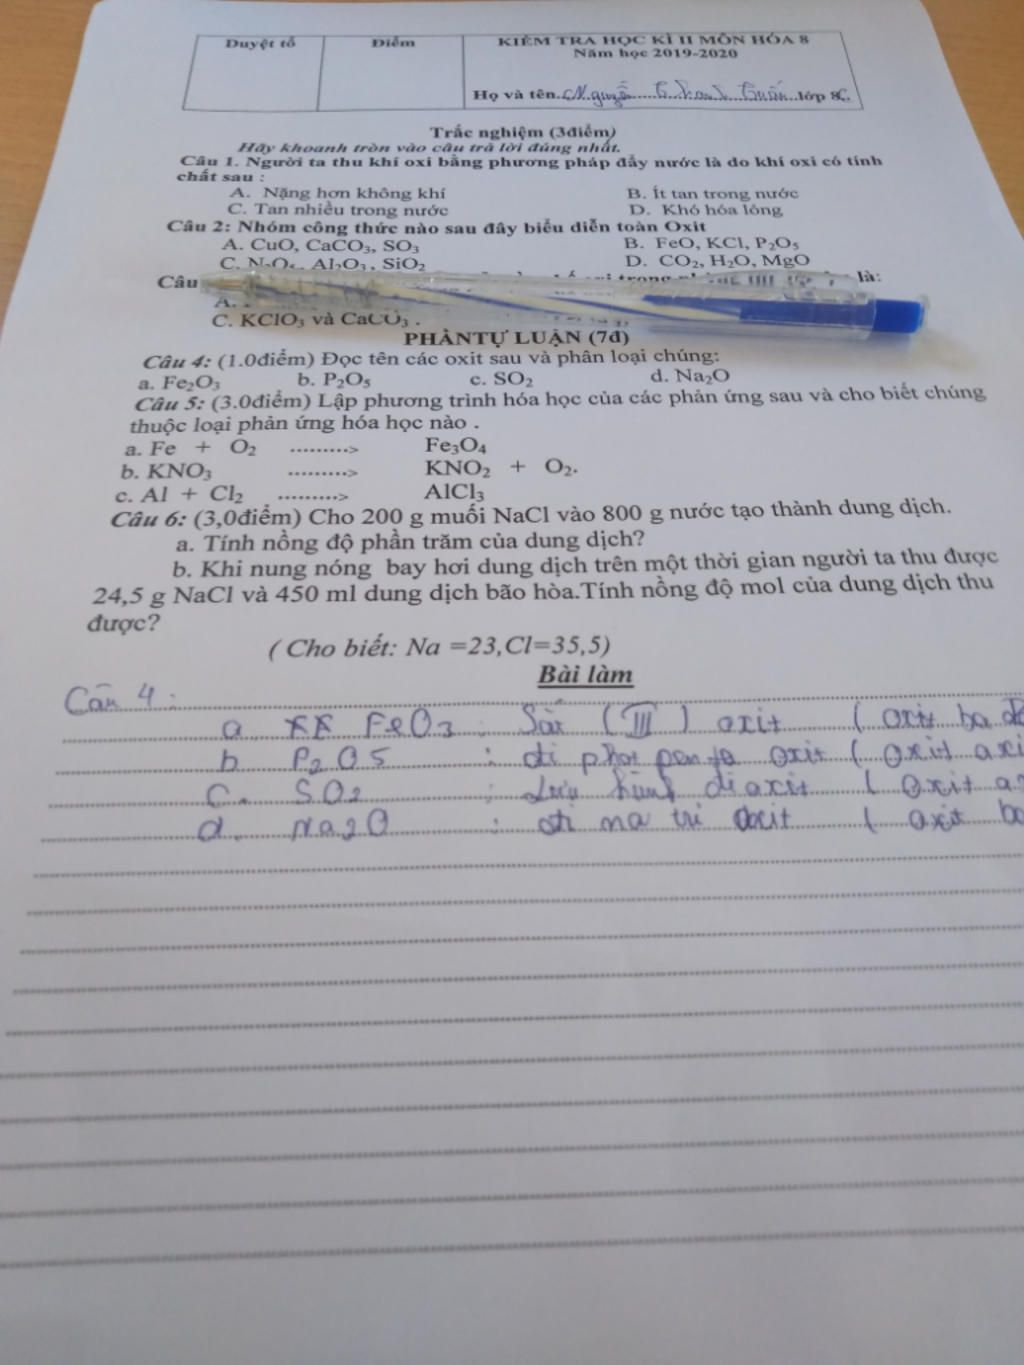 Duyệt tổ
Điểm
KIỂM TRA HỌC KÌ II MÔN HÓA 8
Năm học 2019-2020
Họ và tên. Nguyễn lớp 8C.
Trắc nghiệm (3điểm)
Hãy khoanh tròn vào câu trả lời đúng nhất.
Câu 1. Người ta thu khí oxi bằng phương pháp đẩy nước là do khí oxi có tính
chất sau :
A. Nặng hơn không khí B. Ít tan trong nước
C. Tan nhiều trong nước D. Khó hóa lỏng
Câu 2: Nhóm công thức nào sau đây biểu diễn toàn Oxit
A. CuO, CaCO₃, SO₃ B. FeO, KCl, P₂O₅
C. N₂O₅, Al₂O₃, SiO₂ D. CO₂, H₂O, MgO
Câu là:
A.
C. KClO₃ và CaCO₃ .
PHẦN TỰ LUẬN (7đ)
Câu 4: (1.0điểm) Đọc tên các oxit sau và phân loại chúng:
a. Fe₂O₃ b. P₂O₅ c. SO₂ d. Na₂O
Câu 5: (3.0điểm) Lập phương trình hóa học của các phản ứng sau và cho biết chúng
thuộc loại phản ứng hóa học nào .
a. Fe + O₂ ---------> Fe₃O₄
b. KNO₃ ---------> KNO₂ + O₂.
c. Al + Cl₂ ---------> AlCl₃
Câu 6: (3,0điểm) Cho 200 g muối NaCl vào 800 g nước tạo thành dung dịch.
a. Tính nồng độ phần trăm của dung dịch?
b. Khi nung nóng bay hơi dung dịch trên một thời gian người ta thu được
24,5 g NaCl và 450 ml dung dịch bão hòa.Tính nồng độ mol của dung dịch thu
được?
( Cho biết: Na =23,Cl=35,5)
Bài làm
Câu 4 :
a FeO3 : Sắt (III) oxit ( oxit ba
b P2O5 : đi phot pen ta oxit ( oxit axi
c. SO2 : Lưu huỳnh đi oxit ( oxit a
d. Na2O : đi na tri oxit ( oxit ba